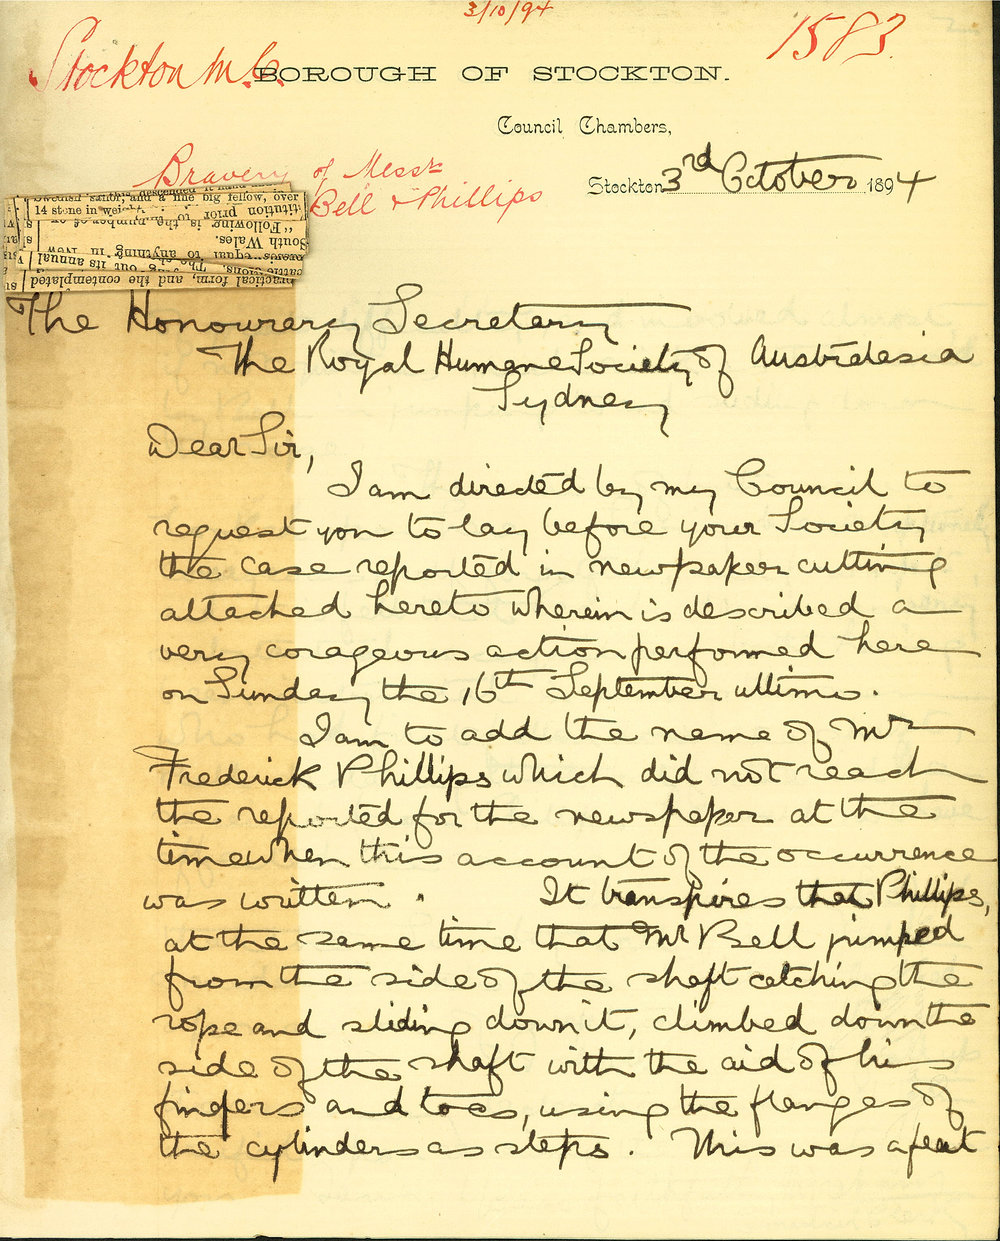 3/10/94
1583.
Stockton M.C.
BOROUGH OF STOCKTON.
Council Chambers,
Bravery of Messrs
Bell & Phillips
Stockton 3rd October 1894
14 stone in weight
titution prior to
"Following is the number of
South Wales.
equal to anything in New
out its annual
practical form, and the contemplated
The Honourary Secretary
The Royal Humane Society of Australasia
Sydney
Dear Sir,
I am directed by my Council to
request you to lay before your Society
the case reported in newspaper cutting
attached hereto wherein is described a
very corageous action performed here
on Sunday the 16th September ultimo.
I am to add the name of Mr
Frederick Phillips which did not reach
the reported for the newspaper at the
time when this account of the occurrence
was written. It transpires that Phillips,
at the same time that Mr Bell jumped
from the side of the shaft catching the
rope and sliding down it, climbed down the
side of the shaft with the aid of his
fingers and toes, using the flanges of
the cylinders as steps. This was a feat